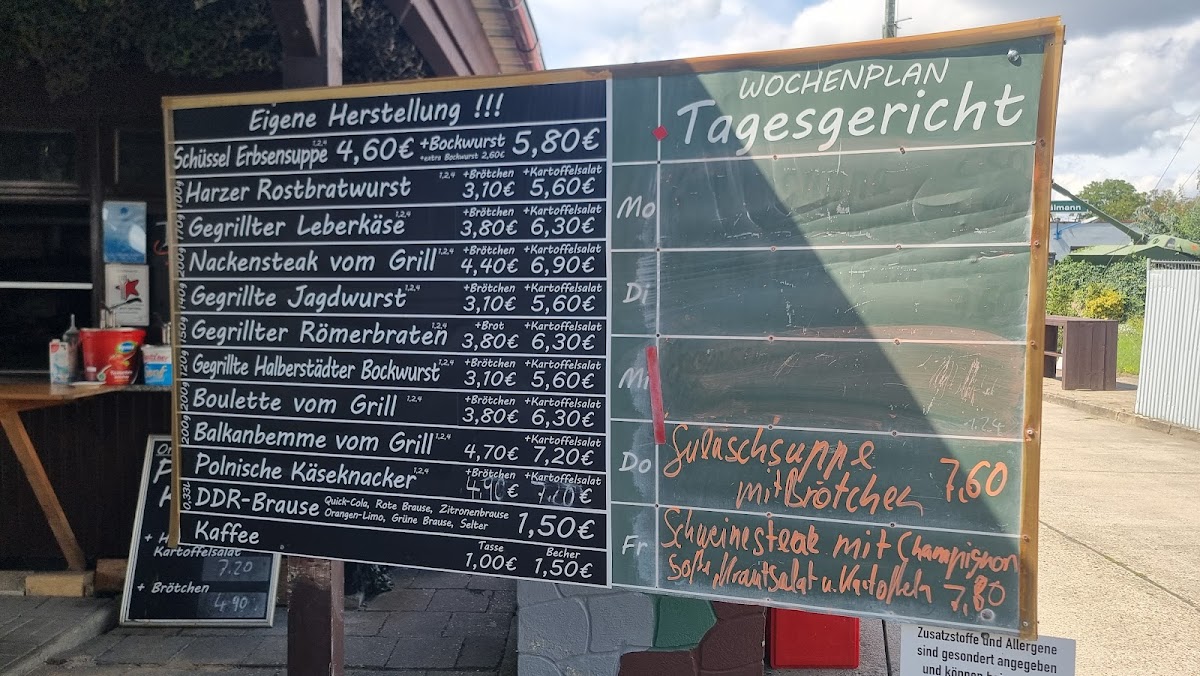 Eigene Herstellung !!!
Schüssel Erbsensuppe 1,2,4 4,60€ +Bockwurst 5,80€
+extra Bockwurst 2,60€
Harzer Rostbratwurst 1,2,4 +Brötchen 3,10€ +Kartoffelsalat 5,60€
Gegrillter Leberkäse 1,2,4 +Brötchen 3,80€ +Kartoffelsalat 6,30€
200g Nackensteak vom Grill 1,2,4 +Brötchen 4,40€ +Kartoffelsalat 6,90€
140g Gegrillte Jagdwurst 1,2,4 +Brötchen 3,10€ +Kartoffelsalat 5,60€
150g Gegrillter Römerbraten 1,2,4 +Brot 3,80€ +Kartoffelsalat 6,30€
120g Gegrillte Halberstädter Bockwurst 1,2,4 +Brötchen 3,10€ +Kartoffelsalat 5,60€
200g Boulette vom Grill 1,2,4 +Brötchen 3,80€ +Kartoffelsalat 6,30€
200g Balkanbemme vom Grill 1,2,4 4,70€ +Kartoffelsalat 7,20€
Polnische Käseknacker 1,2,4 +Brötchen 4,90€ +Kartoffelsalat 7,20€
0,33L DDR-Brause Quick-Cola, Rote Brause, Zitronenbrause
Orangen-Limo, Grüne Brause, Selter 1,50€
Kaffee Tasse 1,00€ Becher 1,50€
WOCHENPLAN
Tagesgericht
Mo
Di
Mi
Do Gulaschsuppe
mit Brötchen 7,60
Fr Schweinesteak mit Champignon
Soße, Krautsalat u. Kartoffeln 7,80
Kartoffelsalat
7.20
+ Brötchen
4.90
Zusatzstoffe und Allergene
sind gesondert angegeben